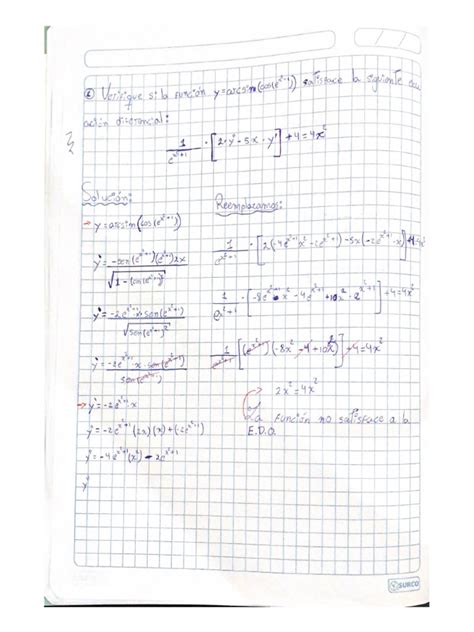 ② Verifique si la función y=arcsin(cos(e^(x²-1)) satisface la siguiente ecu
ación diferencial:
1/e^(x²+1) · [2·y' - 5x · y'] + 4 = 4x²
Solución:
→ y=arcsin(cos(e^(x²+1))
y' = -sen(e^(x²+1))(e^(x²+1))2x / √(1-(cos(e^(x²+1))²)
y' = -2e^(x²+1)·x·sen(e^(x²+1)) / √(sen(e^(x²+1))²
y' = -2e^(x²+1)·x·sen(e^(x²+1)) / sen(e^(x²+1))
→ y' = -2e^(x²+1)·x
y' = -2e^(x²+1)(2x)(x)+(-2e^(x²+1))
y' = -4e^(x²+1)(x²) - 2e^(x²+1)
y'
Reemplazamos:
1/e^(x²+1) · [2(-4e^(x²+1)x²-2e^(x²+1))-5x(-2e^(x²+1)·x)]+4=4x²
1/e^(x²+1) · [-8e^(x²+1)·x²-4e^(x²+1)+10x²·e^(x²+1)]+4=4x²
1/e^(x²+1) [(e^(x²+1))(-8x²-4+10x²)]+4=4x²
2x²=4x²
La función no satisface a la
E.D.O.
SURCO